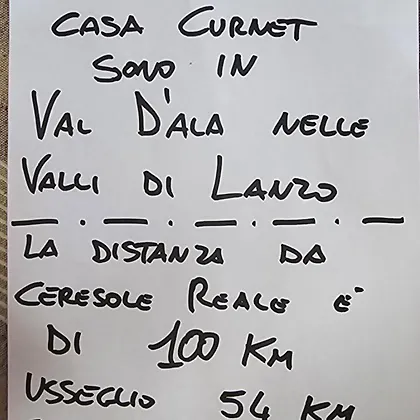 CASA CURNET
SONO IN
VAL D'ALA NELLE
VALLI DI LANZO
LA DISTANZA DA
CERESOLE REALE E'
DI 100 KM
USSEGLIO 54 KM